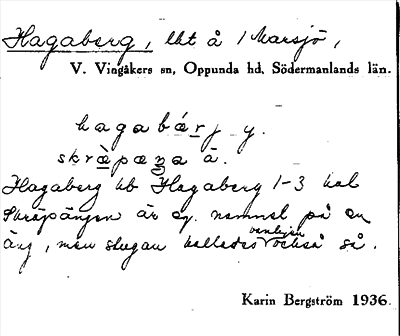 Hagaberg, lht å 1 Marsjö,
V. Vingåkers sn, Oppunda hd, Södermanlands län.
hagabárj y.
skràpæŋa ä.
Hagaberg hb Hagaberg 1-3 kal
Skräpängen är eg. namnet på en
äng, men stugan kallades vanligen också så.
Karin Bergström 1936.